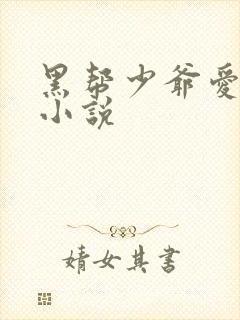 黑帮少爷愛
小說
婧女其書